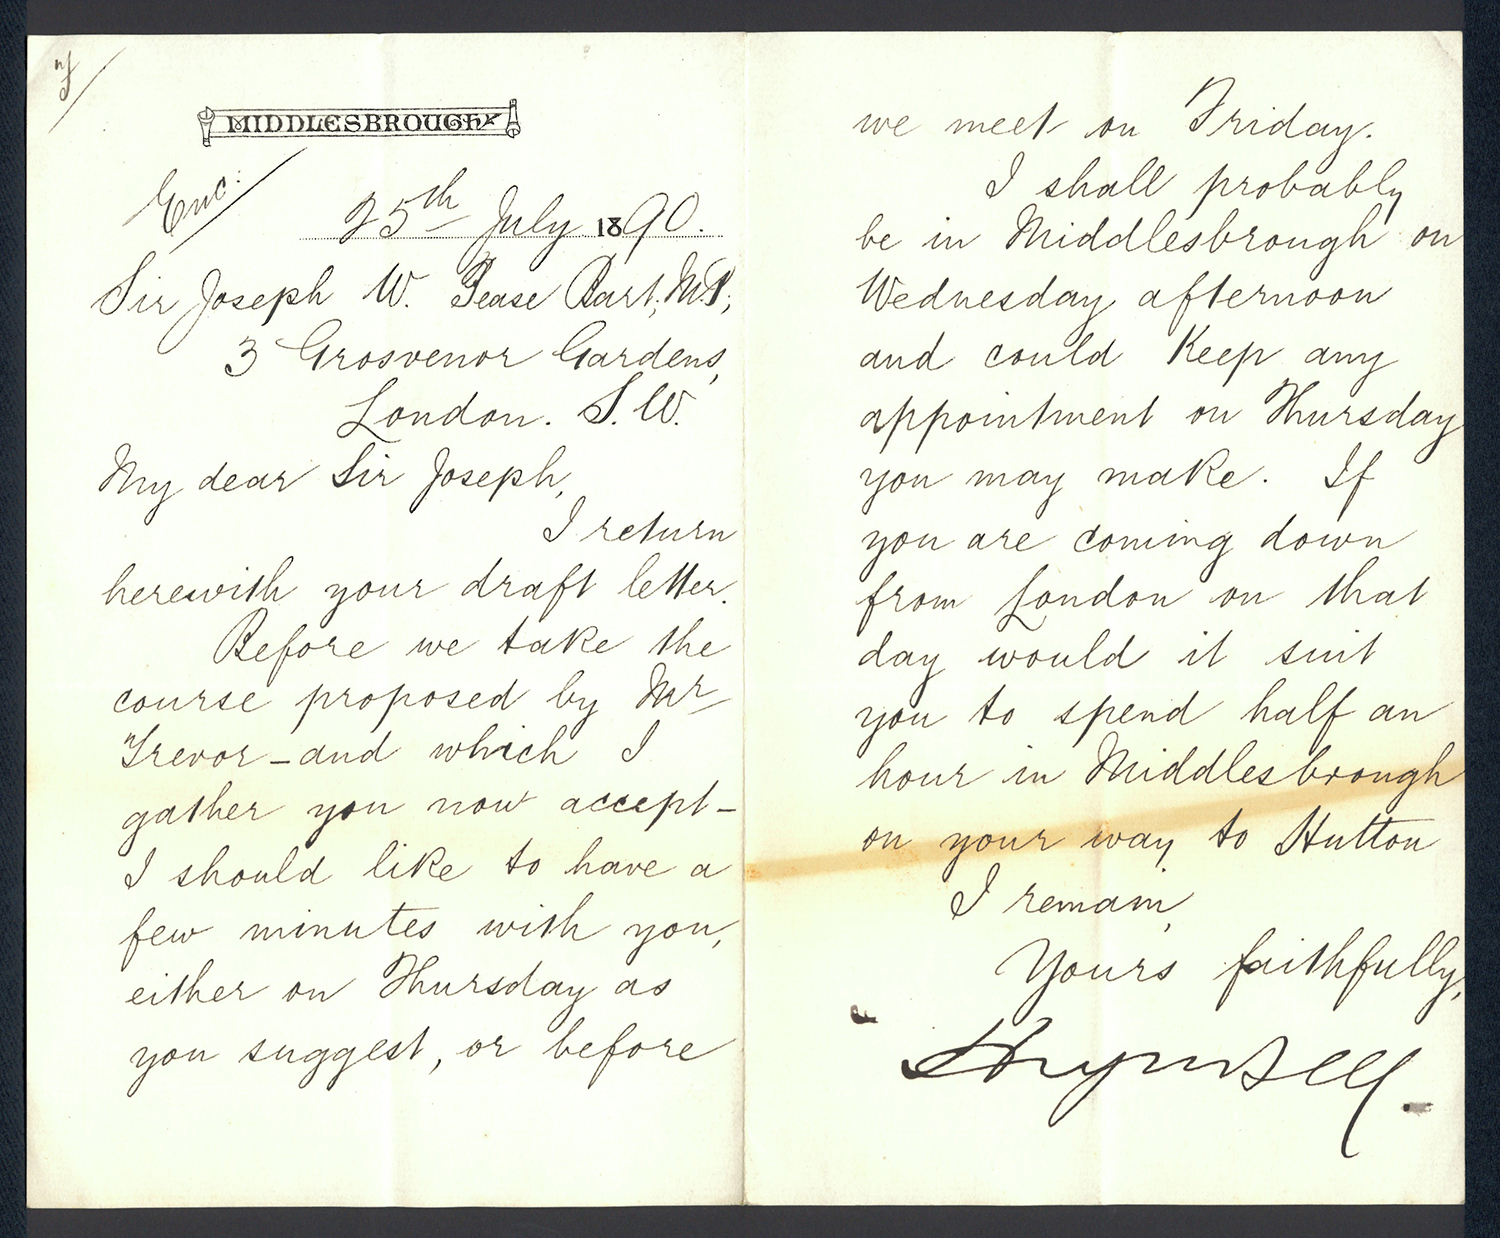 MIDDLESBROUGH
Enc:
25th July 1890.
Sir Joseph W. Pease Bart, M.P,
3 Grosvenor Gardens,
London. S.W.
My dear Sir Joseph,
I return
herewith your draft letter.
Before we take the
course proposed by Mr
Trevor - and which I
gather you now accept -
I should like to have a
few minutes with you,
either on Thursday as
you suggest, or before
we meet on Friday.
I shall probably
be in Middlesbrough on
Wednesday afternoon
and could keep any
appointment on Thursday
you may make. If
you are coming down
from London on that
day would it suit
you to spend half an
hour in Middlesbrough
on your way to Hutton
I remain,
Yours faithfully,